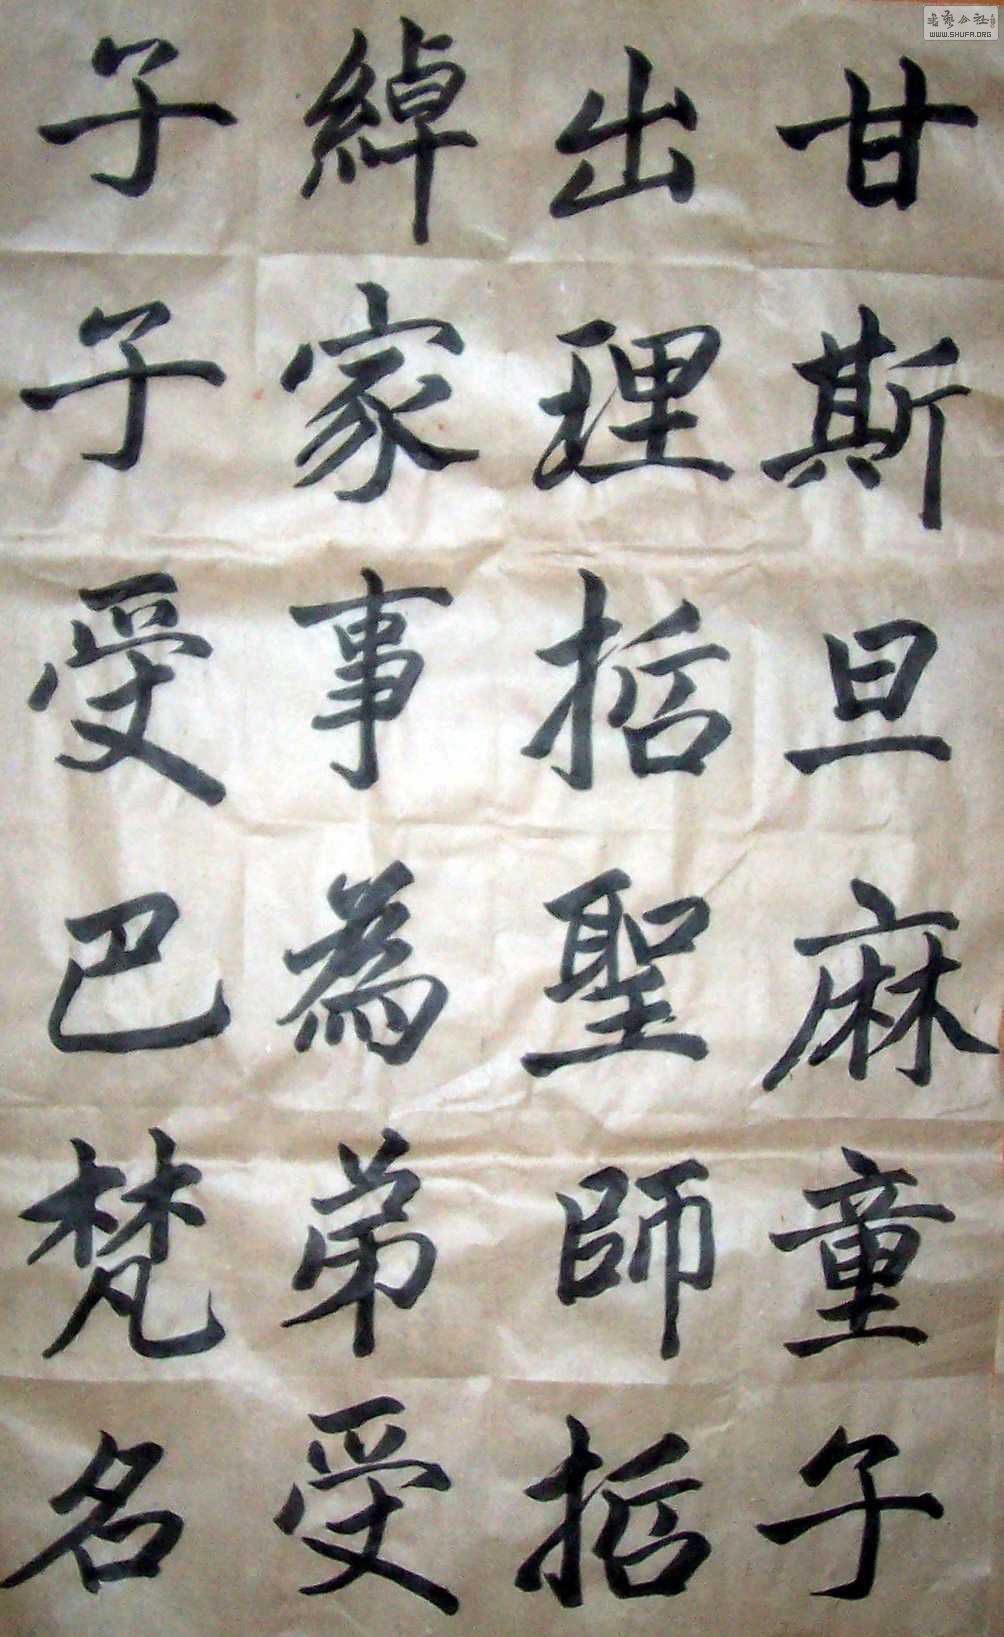 甘斯旦麻童子
出理哲聖師哲
綽家事為弟受
子子受巴梵名
書藝公社
WWW.SHUFA.ORG